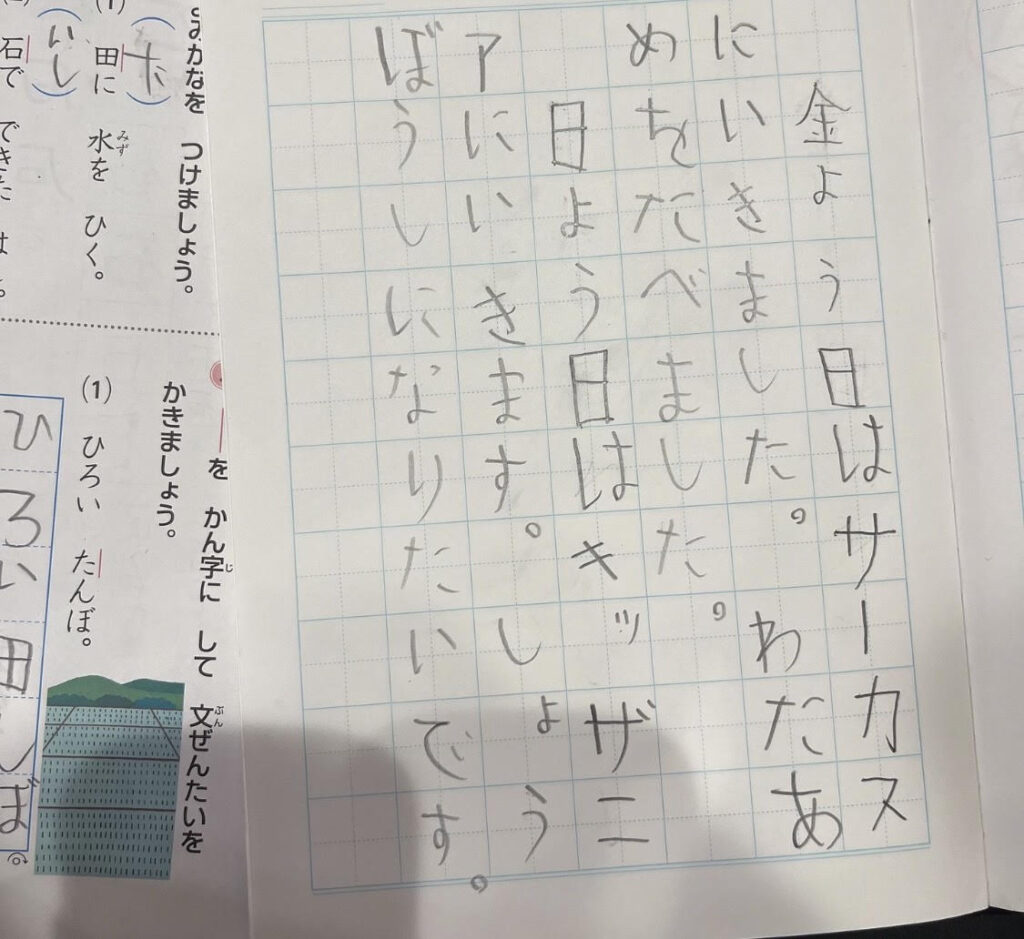 金よう日はサーカス
にいきました。わたあ
めをたべました。
日よう日はキッザニ
アにいきます。しょう
ぼうしになりたいです。
つけましょう。
(1) 田に 水を ひく。
みず
石で できた
いし
を かん字に して 文ぜんたいを
じ
ぶん
かきましょう。
(1) ひろい たんぼ。
ひろい田んぼ。